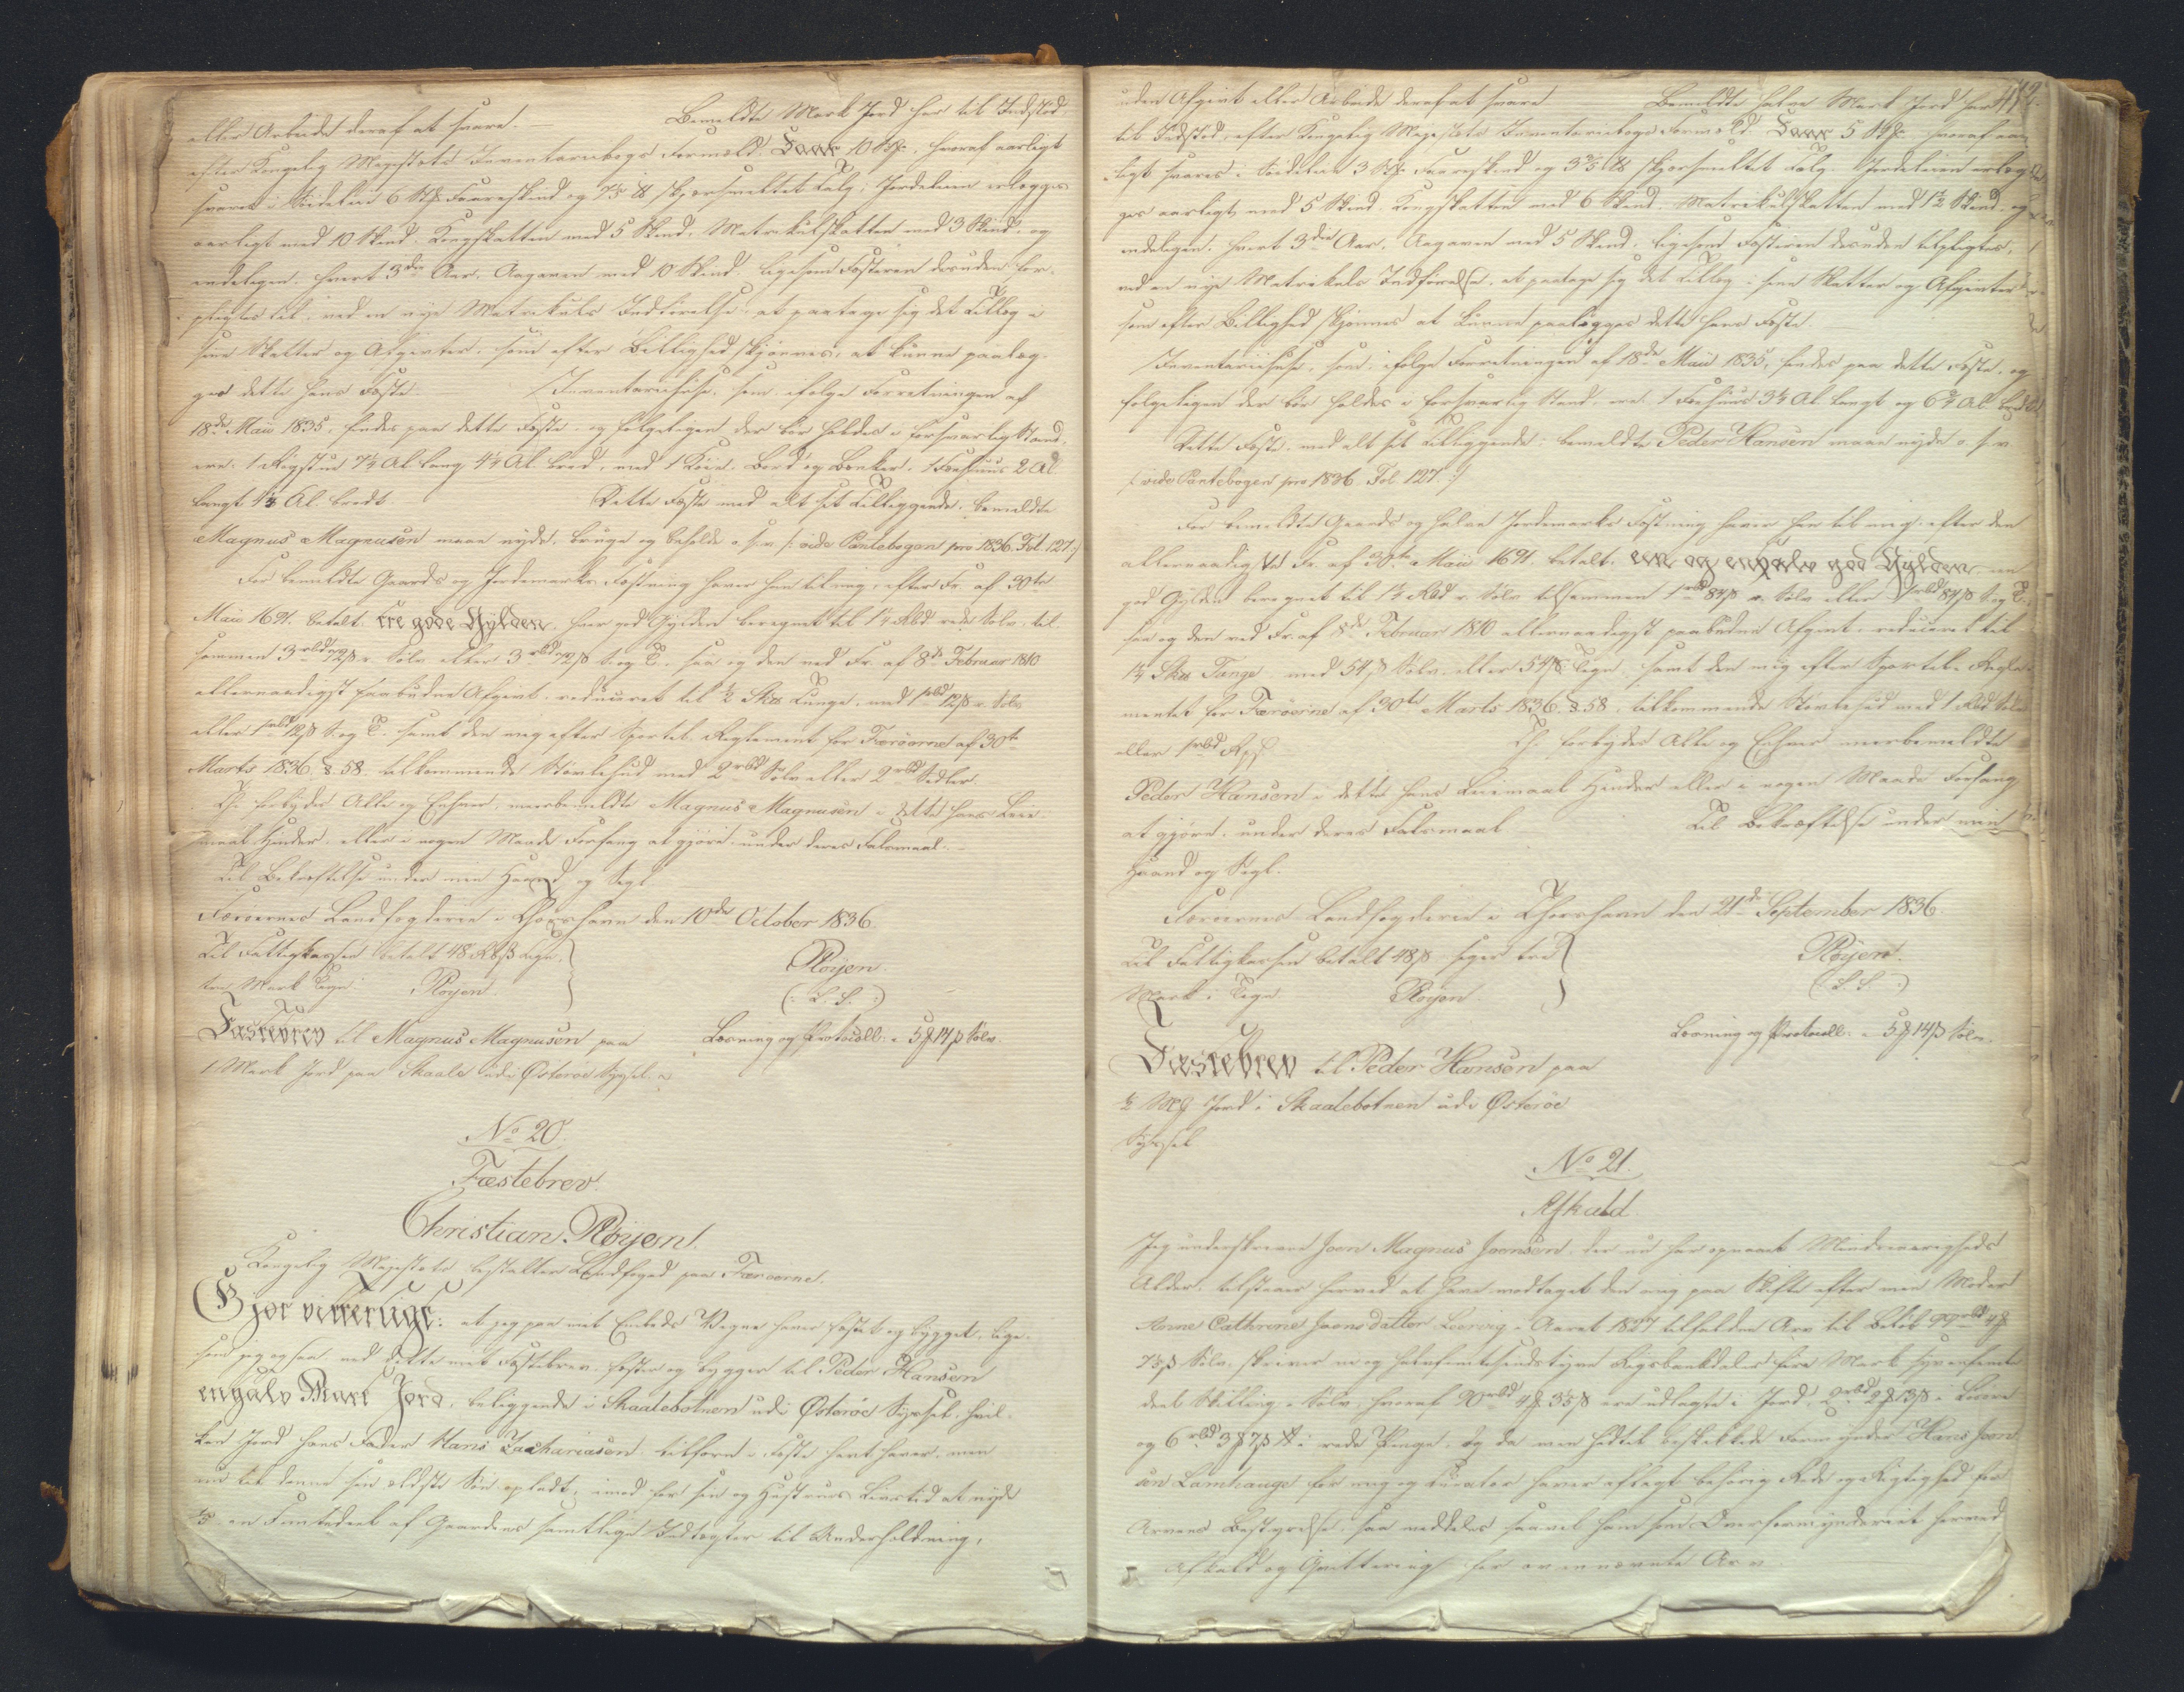 eller Arbeide deraf at svare. — Bemeldte Mark Jord har til Indstæd,
efter Kongelig Majestæts Inventariebogs Formeld. Faar 10 Stk, hvoraf aarligt
svares i Landskyld 6 Stk Faareskind og 7⅕ ℔ skjærsmeltet Talg; Jordeleien erlægges
aarligt med 10 Skind. Kongskatten med 5 Skind, Matrikulskatten med 3 Skind, og
endeligen, hvert 3die Aar, Aagaven med 10 Skind. ligesom Fæsteren desuden for-
pligtes til, ved en nye Matrikuls Indførelse, at paatage sig det Tillæg i
sine Skatter og Afgivter, som efter Billighed skjønnes, at kunne paalæg-
ges dette hans Fæste. — Inventariehuse, som, ifølge Forretningen af
18de Maii 1835, findes paa dette Fæste, og følgeligen der bør holdes i forsvarlig Stand,
ere: 1 Røgstue 7½ Al. lang 4½ Al. bred, med 1 Køie, Bord og Bænker, 1 Faehuus 2 Al
langt 4¼ Al. bredt. Dette Fæste med alt sit Tilliggende, bemeldte
Magnus Magnusen maae nyde, bruge og beholde o. s. v. /: vide Pantebogen pro 1836. Fol. 127:/
For bemeldte Gaards og Jordemarks Fæstning haver han til mig, efter Fr. af 30te
Maii 1691. betalt, tre gode Gylden, hver god Gylden beregnet til 1¼ Rbd rede Sølv, til-
sammen 3 rbd 72 β r. Sølv eller 3 rbd 72 β S. og T. saa og den ved Fr. af 8de Februar 1810
allernaadigst paabudne Afgivt, reduceret til ½ Skp Tunge, med 1 rbd 12 β r. Sølv
eller 1 rbd 12 β S. og T. samt den mig efter Sportel-Reglement for Færöerne af 30te
Marts 1836. §. 58. tilkommende Støvlehud med 2 rbd Sølv eller 2 rbd Sedler.
Thi forbydes Alle og Enhver, meerbemeldte Magnus Magnusen i dette hans Leie-
maal Hinder, eller i nogen Maade Forfang at gjøre, under deres Falsmaal. —
Til Bekræftelse under min Haand og Segl.
Færöernes Landfogderie i Thorshavn den 10de October 1836.
Til Fattigkassen betalt 48 Rbβ Tegn,
tre Mark Tegn Røyen. Røyen.
(: L. S. :)
Fæstebrev til Magnus Magnusen paa Læsning og Protocoll: i 5 ₰ 14 β Sølv.
1 Mark Jord paa Skaale udi Østerøe Syssel. —
No 20.
Fæstebrev.
Christian Røyen.
Kongelig Majestæts bestalter Landfoged paa Færöerne.
Gjør vitterligt: at jeg paa mit Embeds Vegne haver fæstet og bygget, lige-
som jeg ogsaa, ved dette mit Fæstebrev, fæster og bygger til Peder Hansen
enhalv Mark Jord, beliggende i Skaalebotnen udi Østerøe Syssel, hvil-
ken Jord hans Fader Hans Zachariasen tilforn i Fæste havt haver, men
nu til denne sin ældste Søn opladt, imod for sin og Hustrues Livstid at nyde
⅕ en Femtedeel af Gaardens samtlige Indtægter til Underholdning,
uden Afgivt eller Arbeide deraf at svare. Bemeldte halve Mark Jord har
til Indstæd, efter Kongelig Majestæts Inventariebogs Formeld. Faar 5 Stk, hvoraf aar-
ligt svares i Landskyld 3 Stk Faareskind og 3⅗ ℔ skjærsmeltet Talg. Jordeleien erlæg-
ges aarligt med 5 Skind. Kongskatten med 6 Skind. Matrikulskatten med 1½ Skind, og
endeligen, hvert 3die Aar, Aagaven med 5 Skind, ligesom Fæsteren desuden tilpligtes,
ved en nye Matrikuls Indførelse, at paatage sig det Tillæg i sine Skatter og Afgivter
som efter Billighed skjønnes at kunne paalægges dette hans Fæste.
Inventariehuse, som, ifølge Forretningen af 18de Maii 1835, findes paa dette Fæste, og
følgeligen der bør holdes i forsvarlig Stand, ere: 1 Faehuus 3¼ Al. langt og 6¾ Al. bredt
Dette Fæste, med alt sit Tilliggende, bemeldte Peder Hansen maae nyde o. s. v.
/: vide Pantebogen pro 1836. Fol 127 :/
For bemeldte Gaards og halve Jordemarks Fæstning haver han til mig, efter den
allernaadigste Fr. af 30te Maii 1691. betalt, en og enhalv god Gylden, en
god Gylden beregnet til 1¼ Rbd r. Sølv tilsammen 1 rbd 84 β r. Sølv eller 1 rbd 84 β S. og T.
saa og den ved Fr. af 8de Februar 1810 allernaadigst paabudne Afgivt, reduceret til
¼ Skp Tunge, med 54 β Sølv eller 54 β Tegn, samt den mig efter Sportel-Regle-
mentet for Færöerne af 30te Marts 1836. §. 58. tilkommende Støvlehud med 1 Rbd Sølv
eller 1 rbd Thi forbydes Alle og Enhver meerbemeldte
Peder Hansen i dette hans Leiemaal Hinder eller i nogen Maade Forfang
at gjøre, under deres Falsmaal. Til Bekræftelse under min
Haand og Segl.
Færöernes Landfogderie i Thorshavn den 21de September 1836.
Til Fattigkassen betalt 48 β siger tre Røyen.
Mark i Tegn Røyen. (: L. S. :)
Læsning og Protocoll: i 5 ₰ 14 β Sølv.
Fæstebrev til Peder Hansen paa
½ Mk Jord i Skaalebotnen udi Østerøe
Syssel
No 21.
Afkald.
Jeg underskrevne Joen Magnus Joensen, der nu har opnaaet Mindreaarigheds
Alder, tilstaaer herved at have modtaget den mig paa Skifte efter min Moder
Anne Cathrine Joensdatter Leervig i Aaret 1827 tilfaldne Arv til Beløb 99 rbd 4 ₰
7⅕ β Sølv, skriver ni og halvfemtesindstyve Rigsbankdaler fire Mark syv en femte-
deel Skilling Sølv, hvoraf 90 rbd 4 ₰ 3⅕ β ere udlagte i Jord, 2 rbd 2 ₰ 13 β i Løsøre
og 6 rbd 3 ₰ 7 β i rede Penge. Og da min hidtil beskikkede Formynder Hans Joen-
sen Lamhauge for mig og Curator haver aflagt behørig Rede og Rigtighed for
Arvens Bestyrelse, saa meddeles saavel ham som Overformynderiet herved
Afkald og Qvittering for ovennævnte Arv